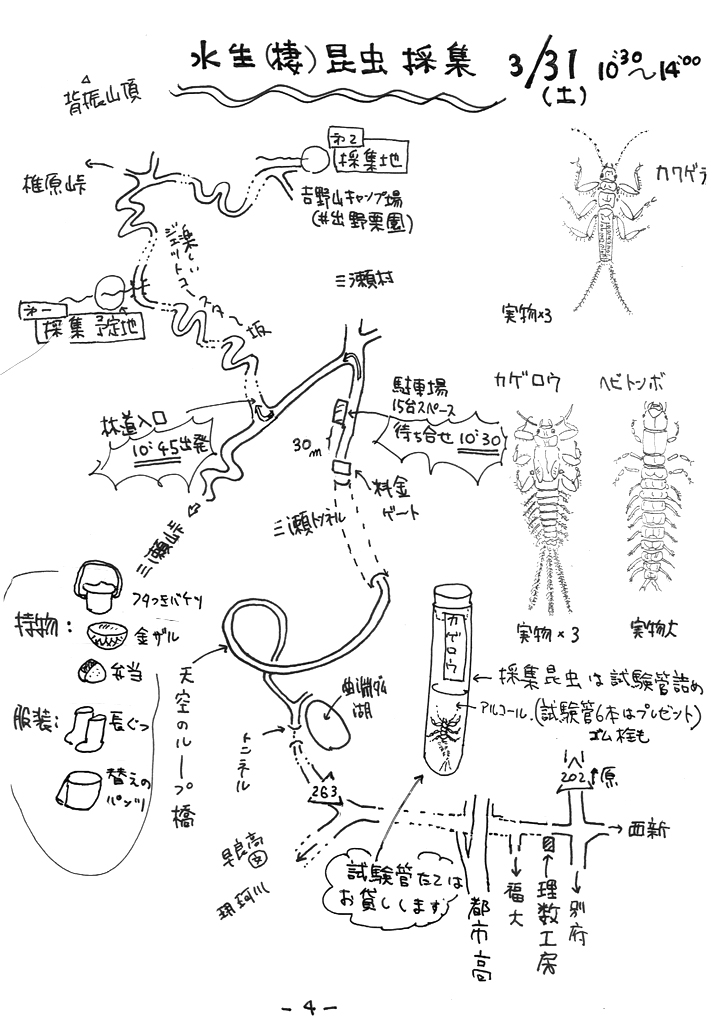 水生(棲)昆虫採集 3/31 10:30〜14:00
(土)
背振山頂
椎原峠
第2
採集地
吉野山キャンプ場
(井出野栗園)
カワゲラ
実物×3
楽しいジェットコースター坂
三瀬村
第一
採集予定地
駐車場
15台スペース
待ち合せ 10:30
林道入口
10:45出発
30m
料金
ゲート
三瀬トンネル
三瀬峠
カゲロウ
ヘビトンボ
実物×3
実物大
持物:
フタつきバケツ
金ザル
弁当
服装:
長ぐつ
替えの
パンツ
天空のループ橋
曲渕ダム
湖
トンネル
263
早良高
文
カゲロウ
←採集昆虫は試験管詰め
アルコール.(試験管6本はプレゼント)
ゴム栓も
試験管たては
お貸しします
202
原
西新
都市高
福大
理数工房
別府
-4-